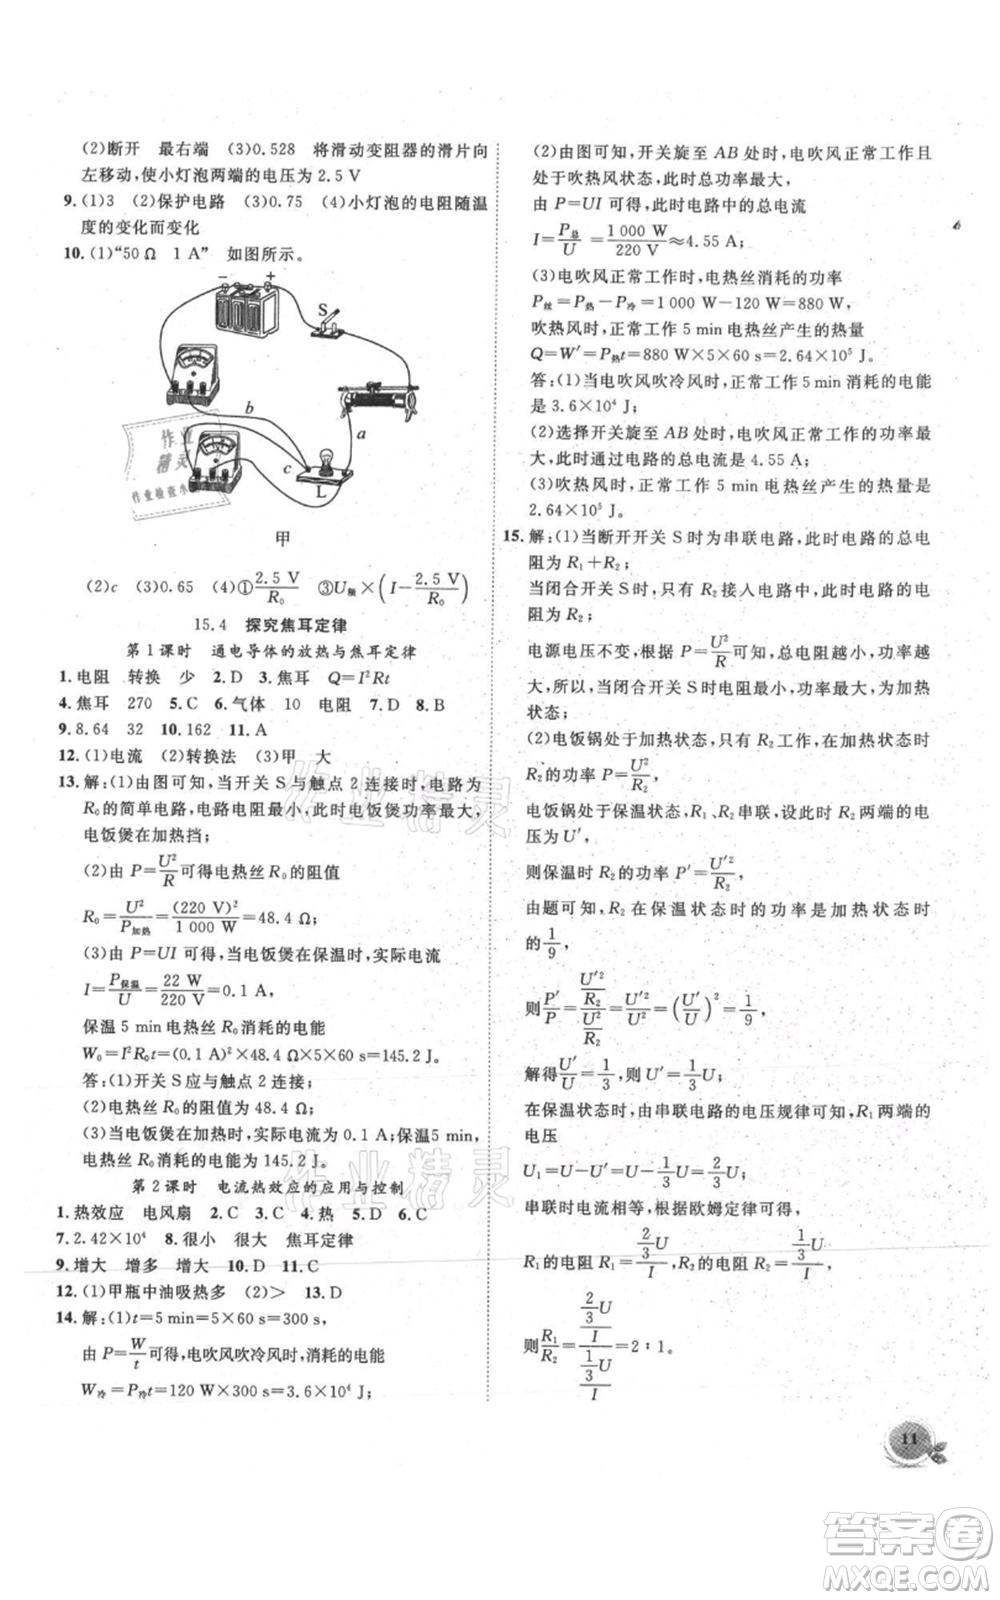 (2)断开　最右端　(3)0.528　将滑动变阻器的滑片向
左移动,使小灯泡两端的电压为2.5 V
9.(1)3　(2)保护电路　(3)0.75　(4)小灯泡的电阻随温
度的变化而变化
10.(1)“50 Ω　1 A”　如图所示。
−　+
S
b
a
c
L
甲
(2)c　(3)0.65　(4)①2.5 V/R₀　③U额×(I−2.5 V/R₀)
15.4　探究焦耳定律
第1课时　通电导体的放热与焦耳定律
1.电阻　转换　少　2.D　3.焦耳　Q=I²Rt
4.焦耳　270　5.C　6.气体　10　电阻　7.D　8.B
9.8.64　32　10.162　11.A
12.(1)电流　(2)转换法　(3)甲　大
13.解:(1)由图可知,当开关S与触点2连接时,电路为
R₀的简单电路,电路电阻最小,此时电饭煲功率最大,
电饭煲在加热挡;
(2)由 P=U²/R可得电热丝R₀的阻值
R₀=U²/P加热=(220 V)²/1 000 W=48.4 Ω;
(3)由 P=UI 可得,当电饭煲在保温时,实际电流
I=P保温/U=22 W/220 V=0.1 A,
保温5 min电热丝R₀消耗的电能
W₀=I²R₀t=(0.1 A)²×48.4 Ω×5×60 s=145.2 J。
答:(1)开关S应与触点2连接;
(2)电热丝R₀的阻值为48.4 Ω;
(3)当电饭煲在加热时,实际电流为0.1 A;保温5 min,
电热丝R₀消耗的电能为145.2 J。
第2课时　电流热效应的应用与控制
1.热效应　电风扇　2.C　3.C　4.热　5.D　6.C
7.2.42×10⁴　8.很小　很大　焦耳定律
9.增大　增多　增大　10.D　11.C
12.(1)甲瓶中油吸热多　(2)>　13.D
14.解:(1)t=5 min=5×60 s=300 s,
由 P=W/t可得,电吹风吹冷风时,消耗的电能
W冷=P冷t=120 W×300 s=3.6×10⁴ J;
(2)由图可知,开关旋至AB处时,电吹风正常工作且
处于吹热风状态,此时总功率最大,
由 P=UI 可得,此时电路中的总电流
I=P总/U=1 000 W/220 V≈4.55 A;
(3)电吹风正常工作时,电热丝消耗的功率
P丝=P热−P冷=1 000 W−120 W=880 W,
吹热风时,正常工作5 min电热丝产生的热量
Q=W′=P热t=880 W×5×60 s=2.64×10⁵ J。
答:(1)当电吹风吹冷风时,正常工作5 min消耗的电能
是3.6×10⁴ J;
(2)选择开关旋至AB处时,电吹风正常工作的功率最
大,此时通过电路的总电流是4.55 A;
(3)吹热风时,正常工作5 min电热丝产生的热量是
2.64×10⁵ J。
15.解:(1)当断开开关S时为串联电路,此时电路的总电
阻为R₁+R₂;
当闭合开关S时,只有R₂接入电路,此时电路的总电
阻为R₂;
电源电压不变,根据 P=U²/R可知,电阻越小,功率越
大,所以,当闭合开关S时电阻最小,功率最大,为加热
状态;
(2)电饭锅处于加热状态时,只有R₂工作,在加热状态时
R₂的功率 P=U²/R₂,
电饭锅处于保温状态时,R₁、R₂串联,设此时R₂两端的电
压为U′,
则保温时,R₂的功率 P′=U′²/R₂,
由题可知,R₂在保温状态时的功率是加热状态时
的1/9,
则P′/P=(U′²/R₂)/(U²/R₂)=U′²/U²=(U′/U)²=1/9,
解得U′/U=1/3,则 U′=1/3U;
在保温状态时,由串联电路的电压规律可知,R₁两端的
电压
U₁=U−U′=U−1/3U=2/3U,
串联时电流相等,根据欧姆定律可得,
R₁的电阻R₁=(2/3U)/I,R₂的电阻R₂=(1/3U)/I,
则R₁/R₂=((2/3U)/I)/((1/3U)/I)=2∶1。
11
作业精灵
作业精灵
作业
精灵
作业检查小
答案卷
MXQE.COM